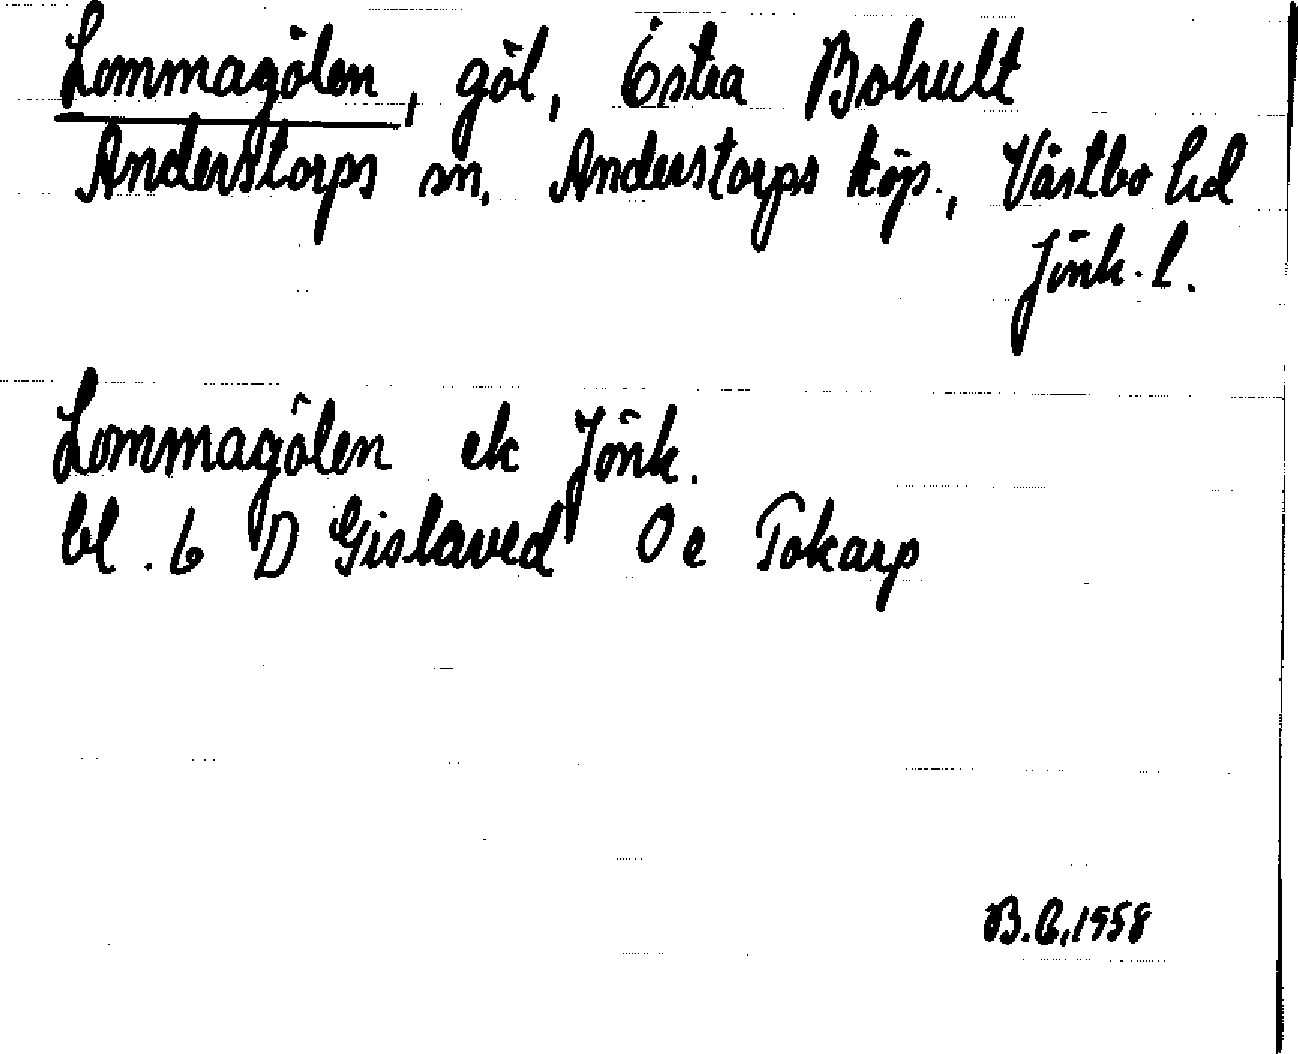 Lommagölen, göl, Östra Bohult
Anderstorps sn. Anderstorps köp., Västbo hd
Jönk. l.
Lommagölen ek Jönk.
bl. 6 D Gislaved 0 e Tokarp
B.C. 1958